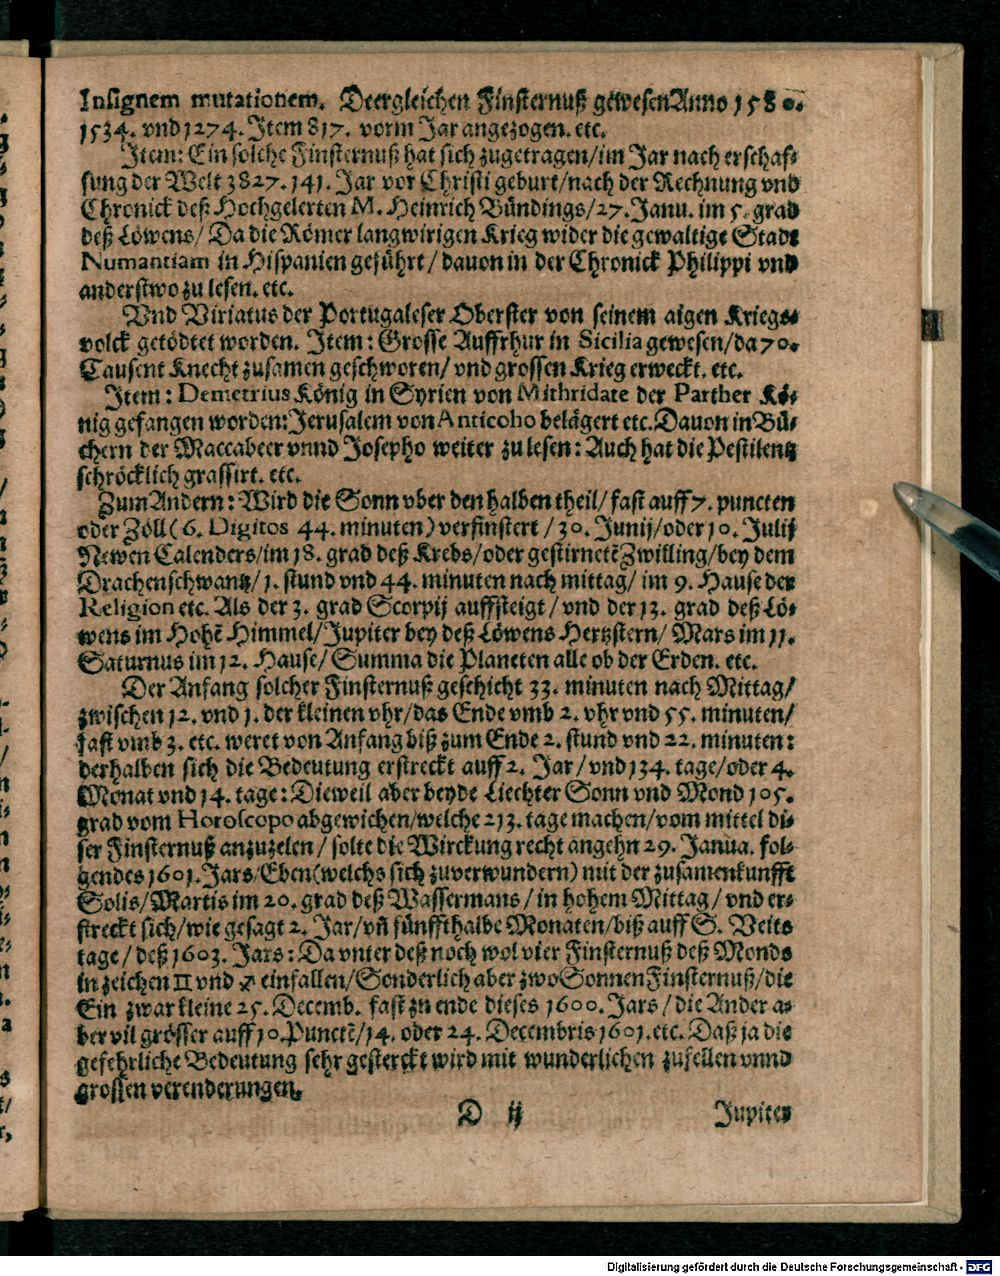 Insignem mutationem. Deergleichen Finsternuß gewesen Anno 1580.
1534. vnd 1274. Item 817. vorm Jar angezogen. etc.
Item: Ein solche Finsternuß hat sich zugetragen/im Jar nach erschaf-
fung der Welt 3827. 141. Jar vor Christi geburt/nach der Rechnung vnd
Chronick deß Hochgelerten M. Heinrich Bündings/27. Janu. im 5. grad
deß Löwens/ Da die Römer langwirigen Krieg wider die gewaltige Stadt
Numantiam in Hispanien geführt/ dauon in der Chronick Philippi vnd
anderstwo zu lesen. etc.
Vnd Viriatus der Portugaleser Oberster von seinem aigen Kriegs-
volck getödtet worden. Item: Grosse Auffrhur in Sicilia gewesen/da 70.
Tausent Knecht zusamen geschworen/ vnd grossen Krieg erweckt. etc.
Item: Demetrius König in Syrien von Mithridate der Parther Kö-
nig gefangen worden: Jerusalem von Anticoho belägert etc. Dauon in Bü-
chern der Maccabeer vnnd Josepho weiter zu lesen: Auch hat die Pestilentz
schröcklich grassirt. etc.
Zum Andern: Wird die Sonn vber den halben theil/ fast auff 7. puncten
oder Zöll (6. Digitos 44. minuten) verfinstert/ 30. Junij/oder 10. Julij
Newen Calenders/im 18. grad deß Krebs/oder gestirnetē Zwilling/bey dem
Drachenschwantz/1. stund vnd 44. minuten nach mittag/ im 9. Hause der
Religion etc. Als der 3. grad Scorpij auffsteigt/ vnd der 13. grad deß Lö-
wens im Hohē Himmel/Jupiter bey deß Löwens Hertzstern/ Mars im 11.
Saturnus im 12. Hause/ Summa die Planeten alle ob der Erden. etc.
Der Anfang solcher Finsternuß geschicht 33. minuten nach Mittag/
zwischen 12. vnd 1. der kleinen vhr/das Ende vmb 2. vhr vnd 55. minuten/
fast vmb 3. etc. weret von Anfang biß zum Ende 2. stund vnd 22. minuten:
derhalben sich die Bedeutung erstreckt auff 2. Jar/ vnd 134. tage/oder 4.
Monat vnd 14. tage: Dieweil aber beyde Liechter Sonn vnd Mond 105.
grad vom Horoscopo abgewichen/welche 213. tage machen/vom mittel di-
ser Finsternuß anzuzelen/ solte die Wirckung recht angehn 29. Janua. fol-
gendes 1601. Jars/Eben (welchs sich zuverwundern) mit der zusamenkunfft
Solis/Martis im 20. grad deß Wassermans/ in hohem Mittag/ vnd er-
streckt sich/wie gesagt 2. Jar/vñ fünffthalbe Monaten/biß auff S. Veits
tage/ deß 1603. Jars: Da vnter deß noch wol vier Finsternuß deß Monds
in zeichen ♊ vnd ♐ einfallen/Sonderlich aber zwo Sonnen Finsternuß/die
Ein zwar kleine 25. Decemb. fast zu ende dieses 1600. Jars/ die Ander a-
ber vil grösser auff 10. Punctē/14. oder 24. Decembris 1601. etc. Daß ja die
gefehrliche Bedeutung sehr gesterckt wird mit wunderlichen zufellen vnnd
grossen verenderungen.
D ij Jupiter
Digitalisierung gefördert durch die Deutsche Forschungsgemeinschaft - DFG